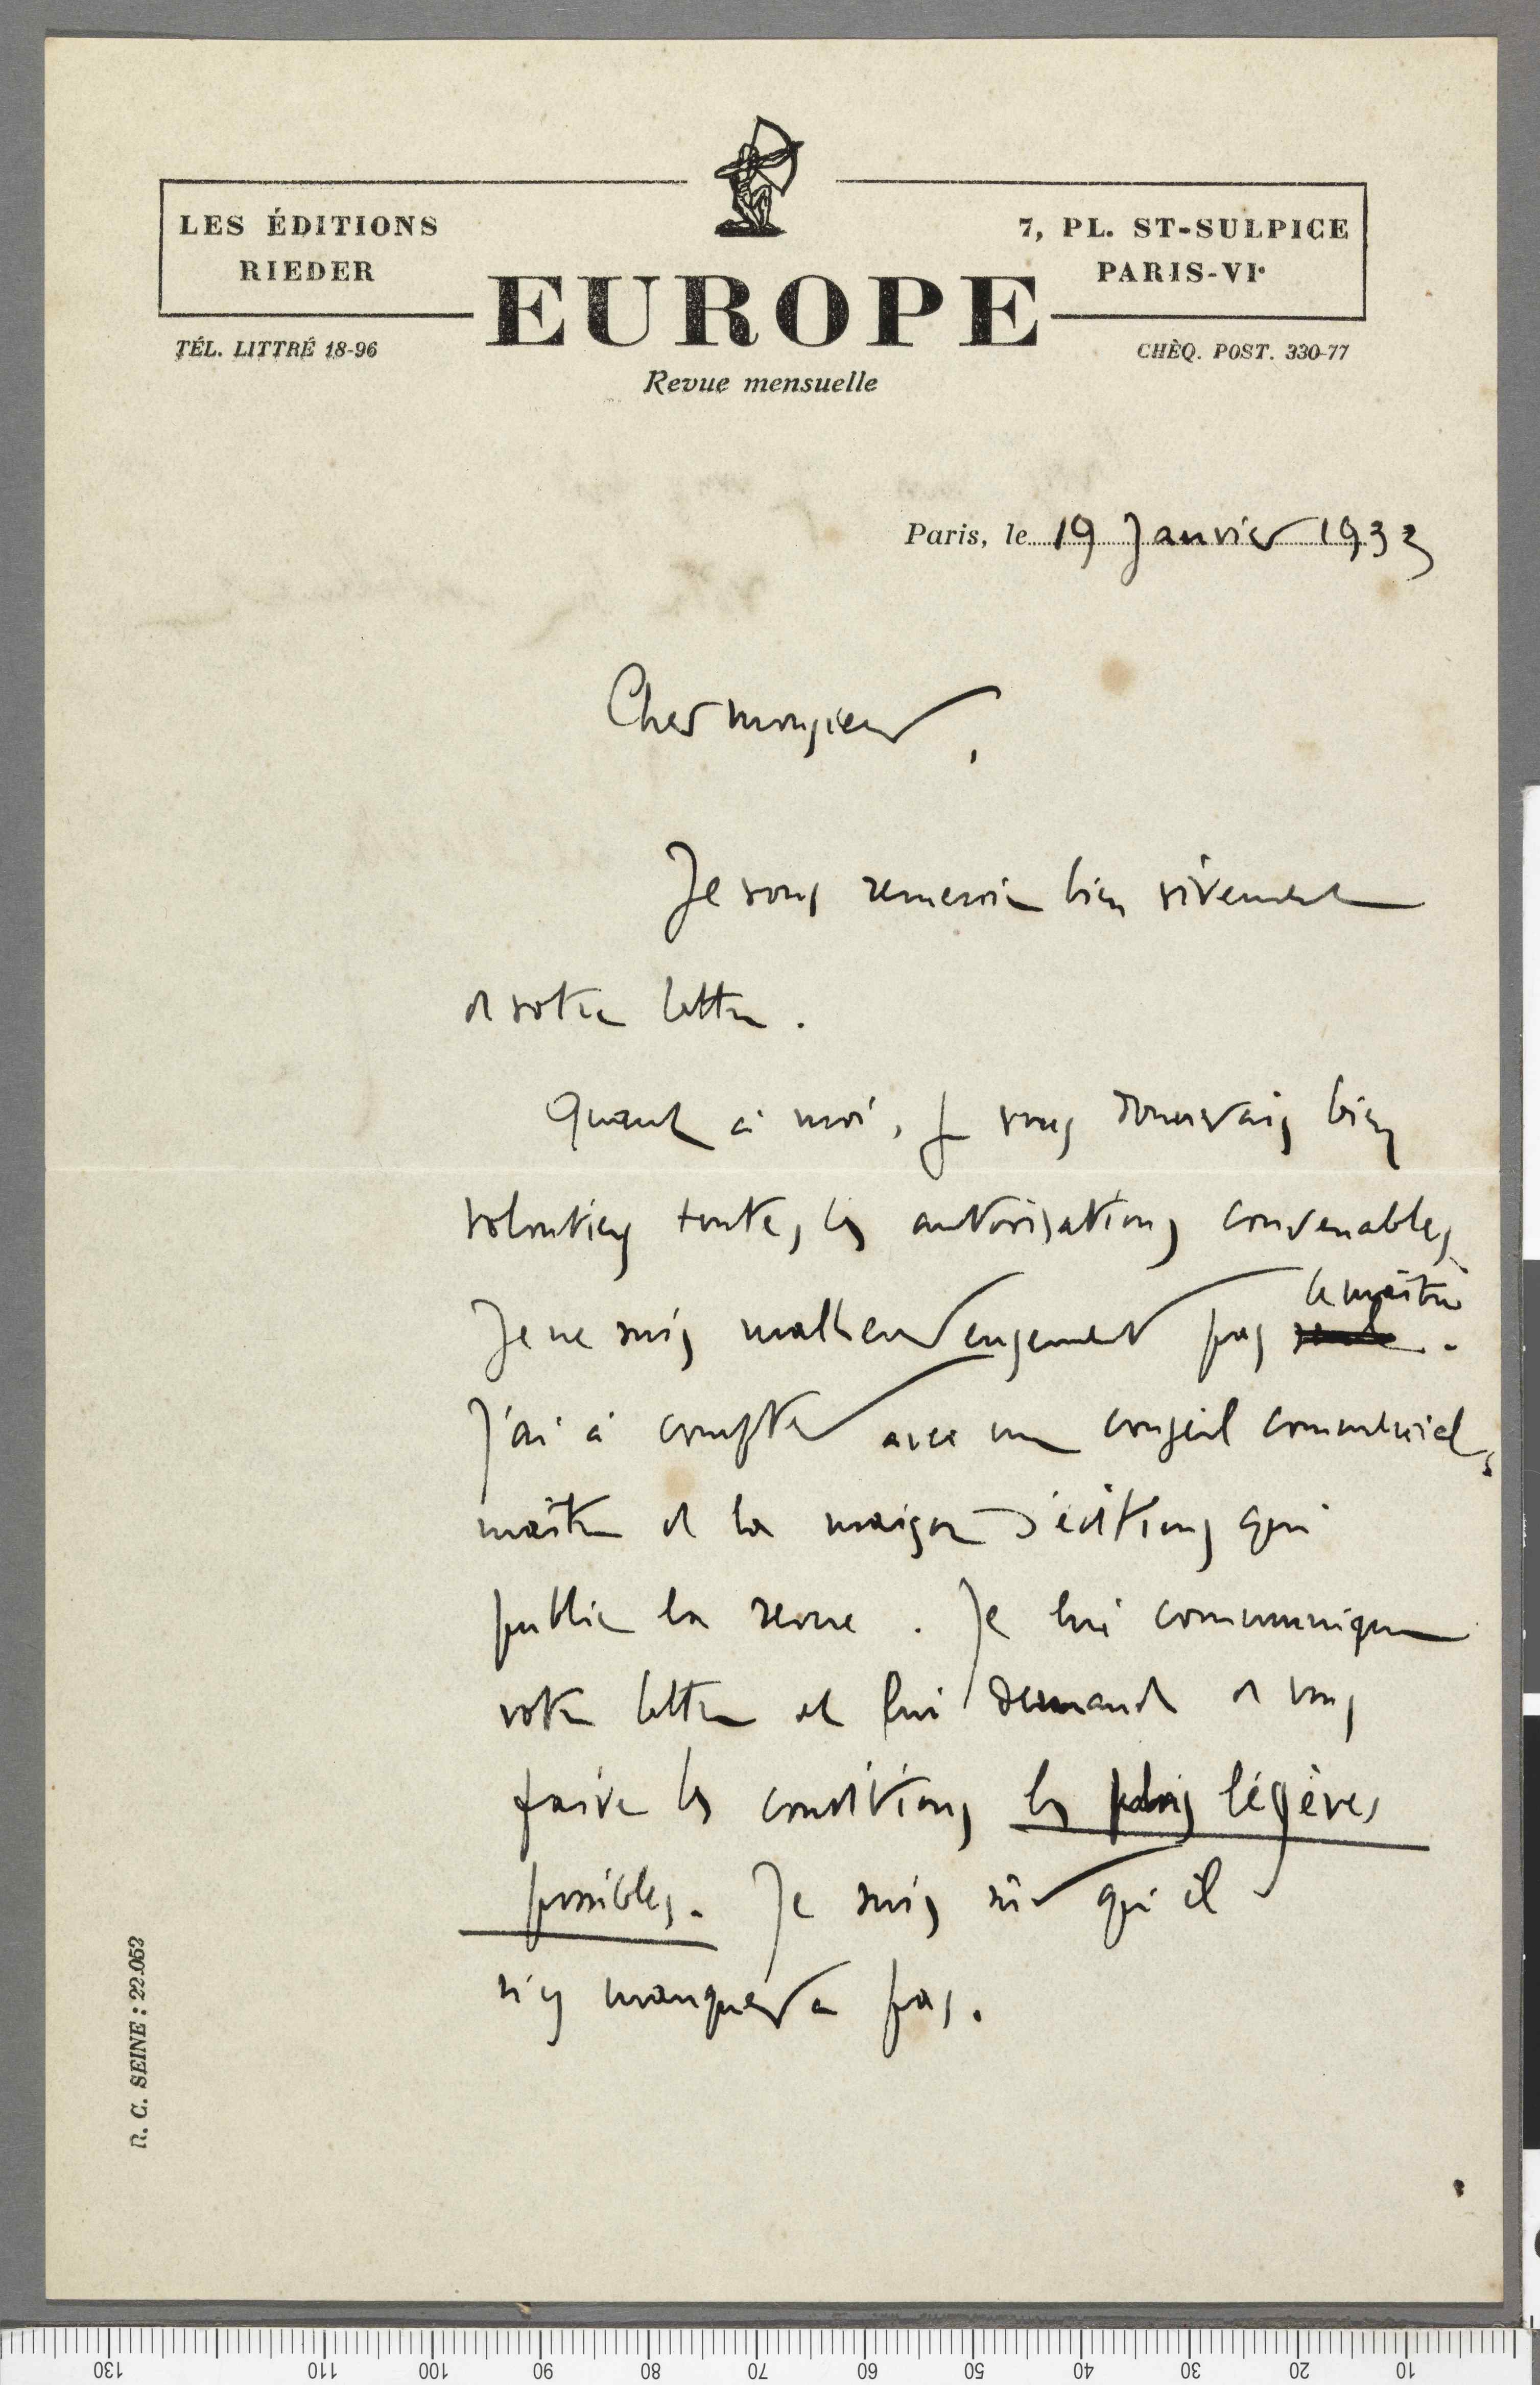 LES ÉDITIONS
RIEDER
7, PL. ST-SULPICE
PARIS-VIe
EUROPE
TÉL. LITTRÉ 18-96
CHÈQ. POST. 330-77
Revue mensuelle
Paris, le 19 Janvier 1933
Cher monsieur,
Je vous remercie bien vivement
de votre lettre.
Quant à moi, je vous donnerais bien
volontiers toutes les autorisations convenables
le maître
Je ne suis malheureusement pas .
J'ai à compter avec un conseil commercial,
maître de la maison d'éditions qui
publie la revue. Je lui communique
votre lettre et lui demande de vous
faire les conditions les plus légères
possibles. Je suis sûr qu'il
n'y manquera pas.
R. C. SEINE : 22.052
130 110 100 90 80 70 60 50 40 30 20 10